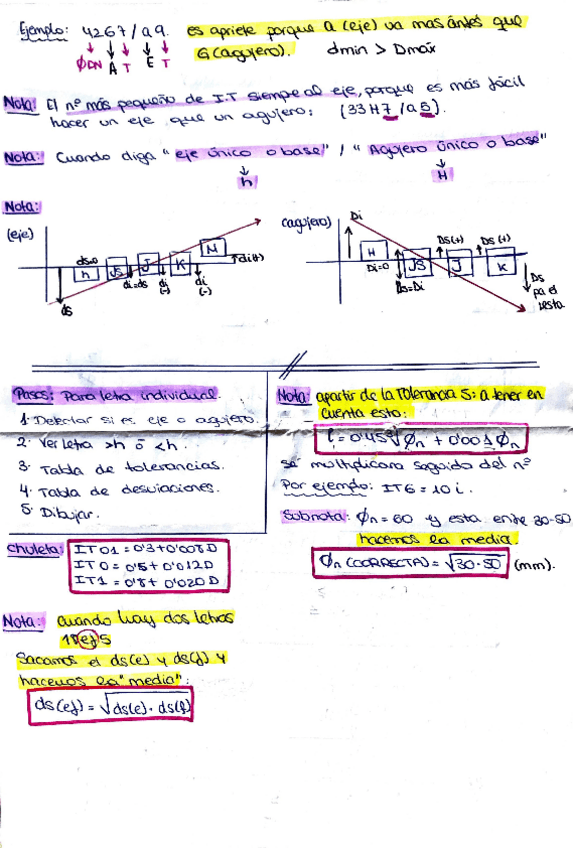 Ejemplo: 42G7/a9. es apriete porque a (eje) va mas ántes que
G (agujero). dmin > Dmáx
ØDN A T E T
Nota: El nº más pequeño de I.T siempre al eje, porque es más fácil
hacer un eje que un agujero; (33H7/a5).
Nota: Cuando diga "eje único o base" / "Agujero único o base"
h H
Nota:
(eje) ds=0 h JS J K M di(+)
di=ds di (-) di (-)
ds
(agujero) Di H Di=0 JS J K
DS(+) DS(+)
Ds=Di
Ds pa el resta
Pasos: Para letra individual.
1. Detectar si es eje o agujero
2. Ver letra >h ó <h.
3. Tabla de tolerancias.
4. Tabla de desviaciones.
5. Dibujar.
Chuleta: IT01 = 0'3+0'008D
IT0 = 0'5+0'012D
IT1 = 0'8+0'020D
Nota: cuando hay dos letras
18ef5
Sacamos el ds(e) y ds(f) y
hacemos la "media":
ds(ef) = √ds(e)·ds(f)
Nota: apartir de la Tolerancia 5: a tener en
cuenta esto:
i = 0'45 ∛Øn + 0'001 Øn
se multiplicara seguido del nº
Por ejemplo: IT6 = 10i.
Subnota: Øn = 60 y esta entre 30-50
hacemos la media.
Øn (CORRECTA) = √30·50 (mm).